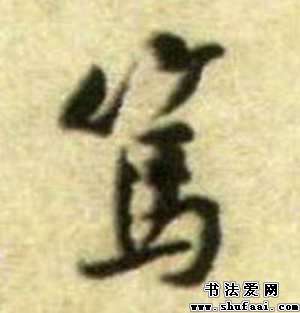 笃
书法爱网
www.shufaai.com